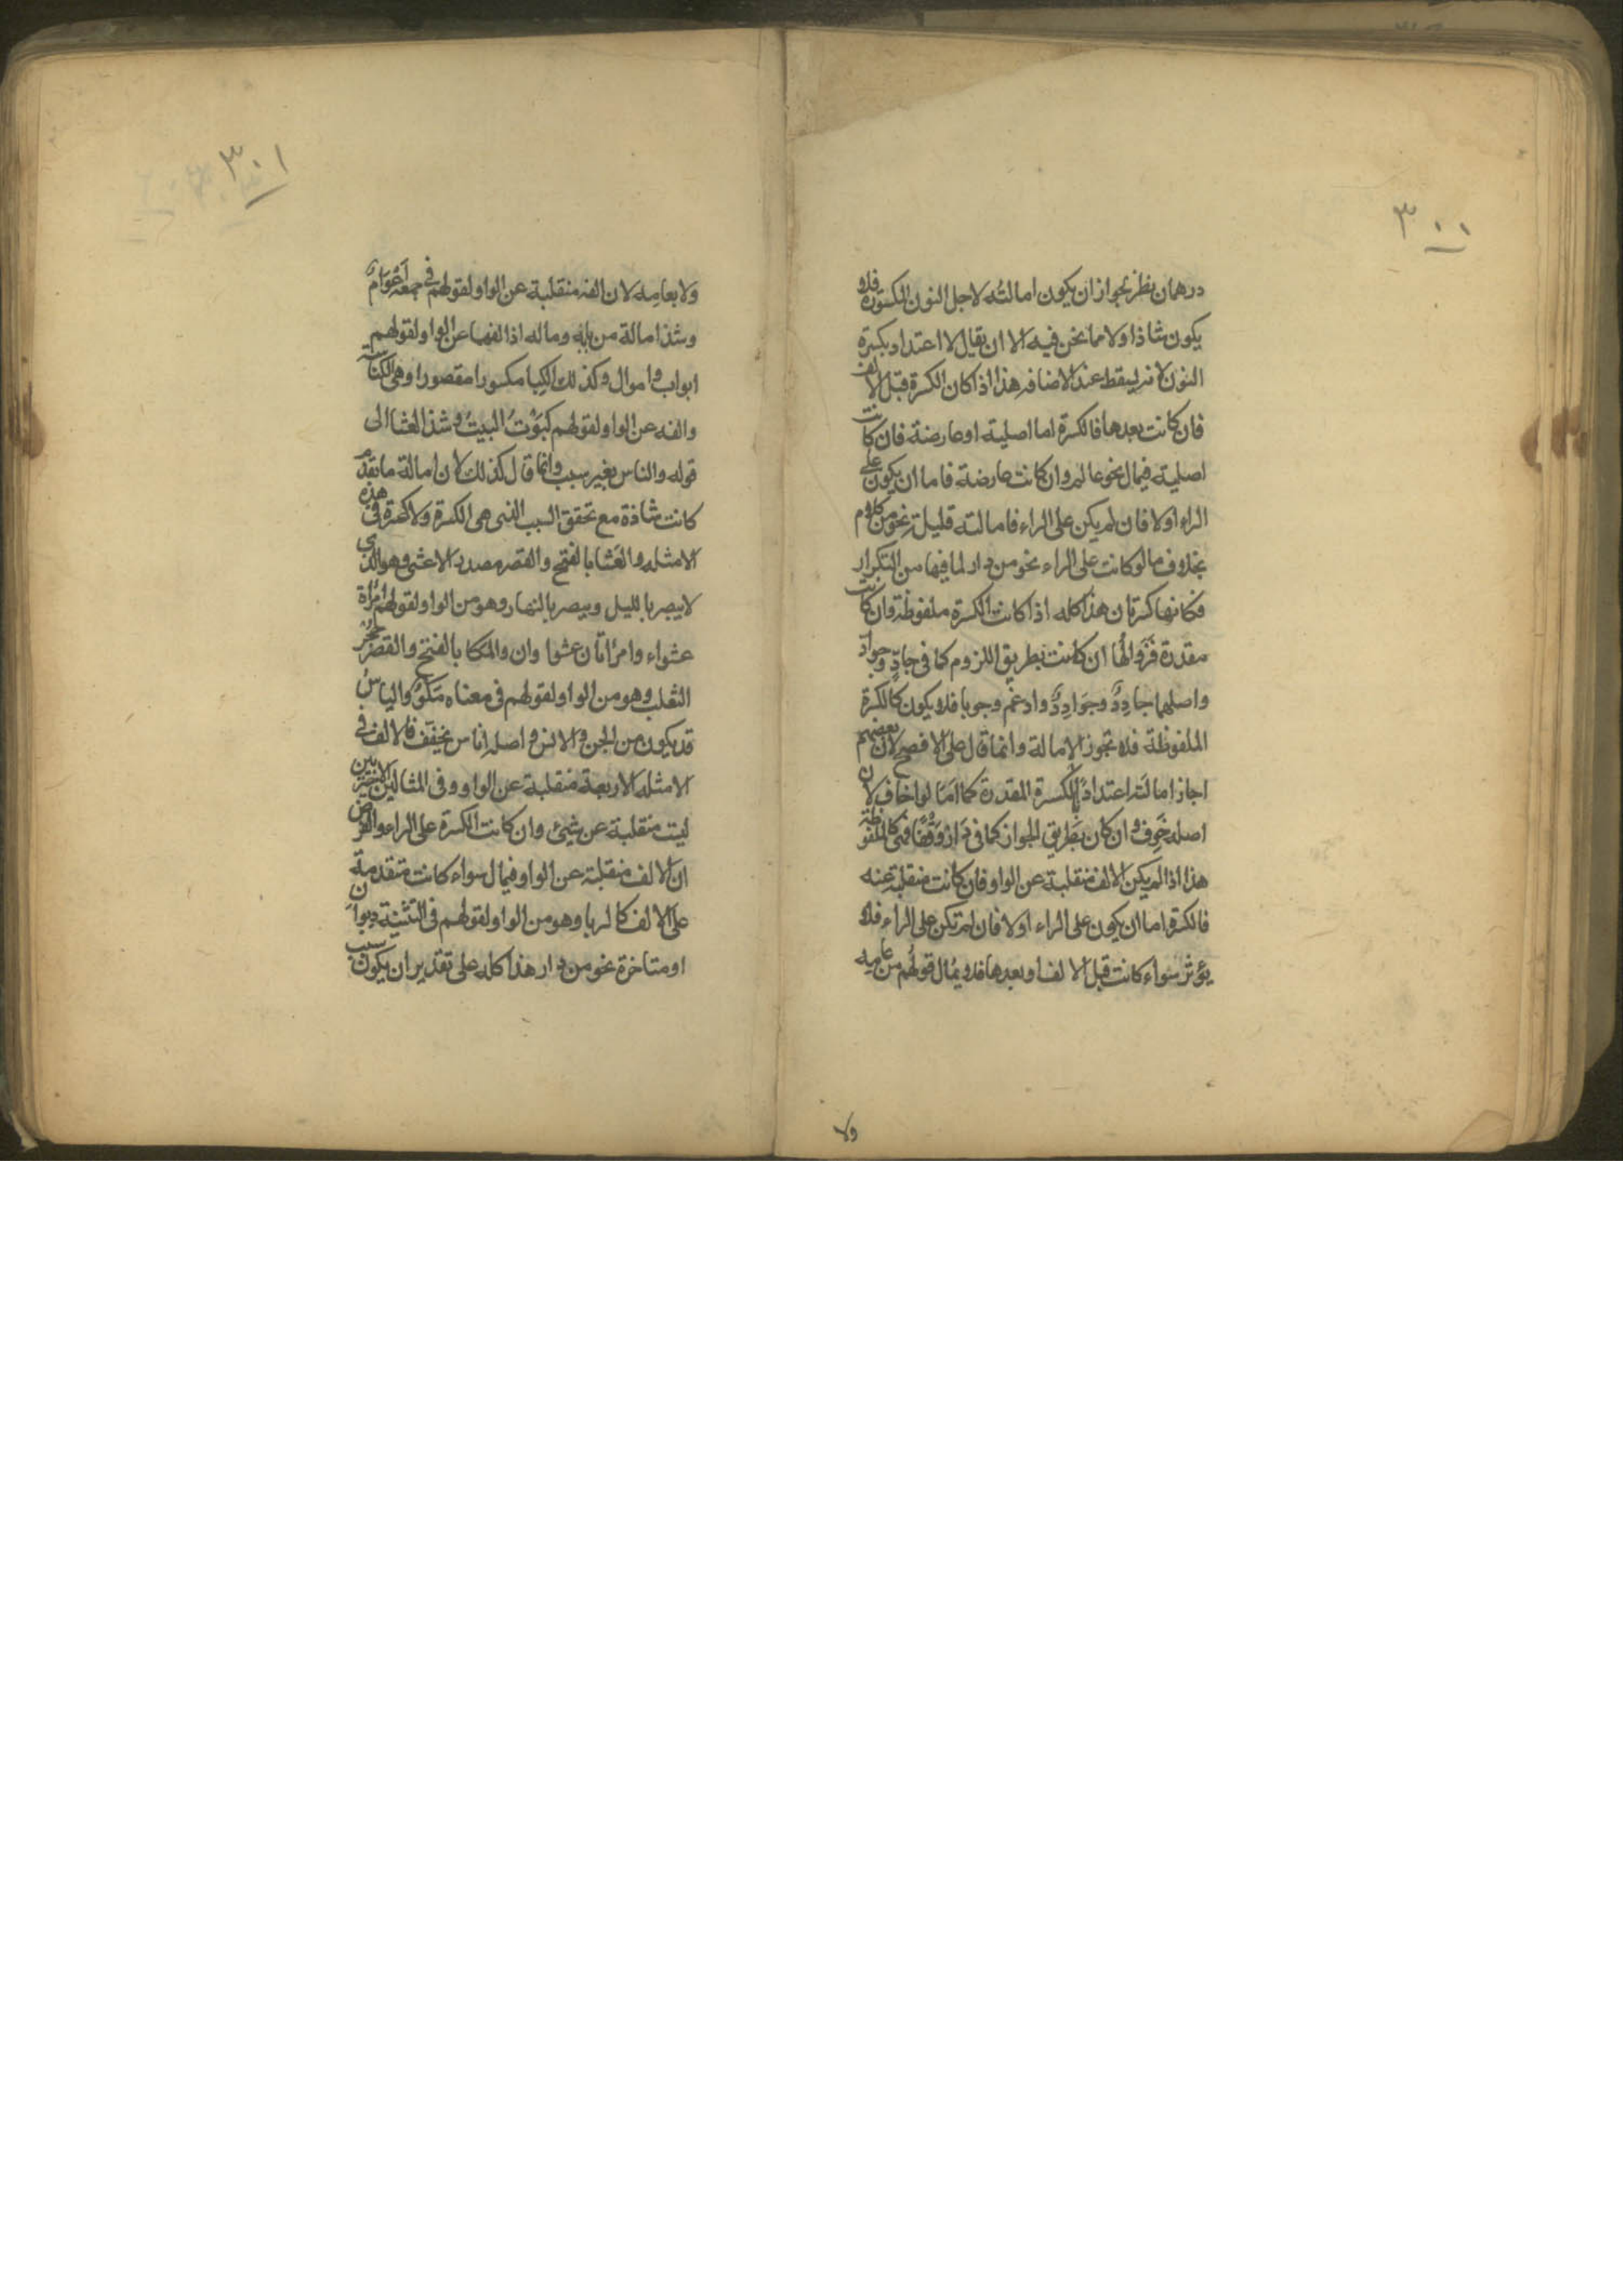 ٣٠٠
درهمان نظر لجواز ان يكون امالته لاجل النون المكسورة فلا
يكون شاذا ولا مما نحن فيه الا ان يقال لا اعتداد بكسرة
النون لانه يسقط عند الاضافه هذا اذا كان الكسرة قبل الالف
فان كانت بعدها فالكسرة اما اصلية او عارضة فان كانت
اصلية فيمال نحو عالم وان كانت عارضة فاما ان يكون على
الراء اولا فان لم يكن على الراء فامالته قليلة نحو من كلام
بخلاف ما لو كانت على الراء نحو من دار لما فيها من التكرار
فكانها كسرتان هذا كله اذا كانت الكسرة ملفوظة وان كانت
مقدرة فزوالها ان كانت بطريق اللزوم كما في جادّ وجوادّ
واصلهما جادِدٌ وجَوَادِدٌ وادغم وجوبا فلا يكون كالكسرة
الملفوظة فلا تجوز الامالة وانما قال على الافصح لان بعضهم
اجاز امالته اعتدادًا بالكسرة المقدرة كما امالوا خاف لان
اصله خَوِف وان كان بطريق الجواز كما في دار وقفا فهي كالملفوظة
هذا اذا لم يكن الالف منقلبة عن الواو فان كانت منقلبة عنه
فالكسرة اما ان يكون على الراء اولا فان لم تكن على الراء فلا
يؤثر سواء كانت قبل الالف او بعدها فلا يمال قولهم من عامه
ولا
٣٠١
ولا بعامِه لان الفه منقلبة عن الواو لقولهم في جمعه اَعْوَام
وشذ امالة من بابه وماله اذ الفهما عن الواو لقولهم
ابواب واموال وكذلك الكِبا مكسورا مقصورا وهى الكناسة
والفه عن الواو لقولهم كَبَوْتُ البيتَ وشذ العشا الى
قوله والناس بغير سبب وانما قال كذلك لان امالة ما تقدم
كانت شاذة مع تحقق السبب الذي هى الكسرة ولا كسرة في هذه
الامثله والعَشا بالفتح والقصر مصدر الاعشى وهو الذي
لا يبصر بالليل ويبصر بالنهار وهو من الواو لقولهم امراة
عشواء وامرأتان عشوا وان والمكا بالفتح والقصر جحر
الثعلب وهو من الواو لقولهم في معناه مَكْوٌ والناس
قد يكون من الجن والانس واصله اناس نخفف فالالف في
الامثله الاربعة منقلبة عن الواو وفي المثالين الاخيرين
ليست منقلبة عن شيئ وان كانت الكسرة على الراء والفرض
ان الالف منقلبة عن الواو فيمال سواء كانت متقدمة
على الالف كالربا وهو من الواو لقولهم في التثنية ربوان
او متاخرة نحو من دار هذا كله على تقدير ان يكون سبب